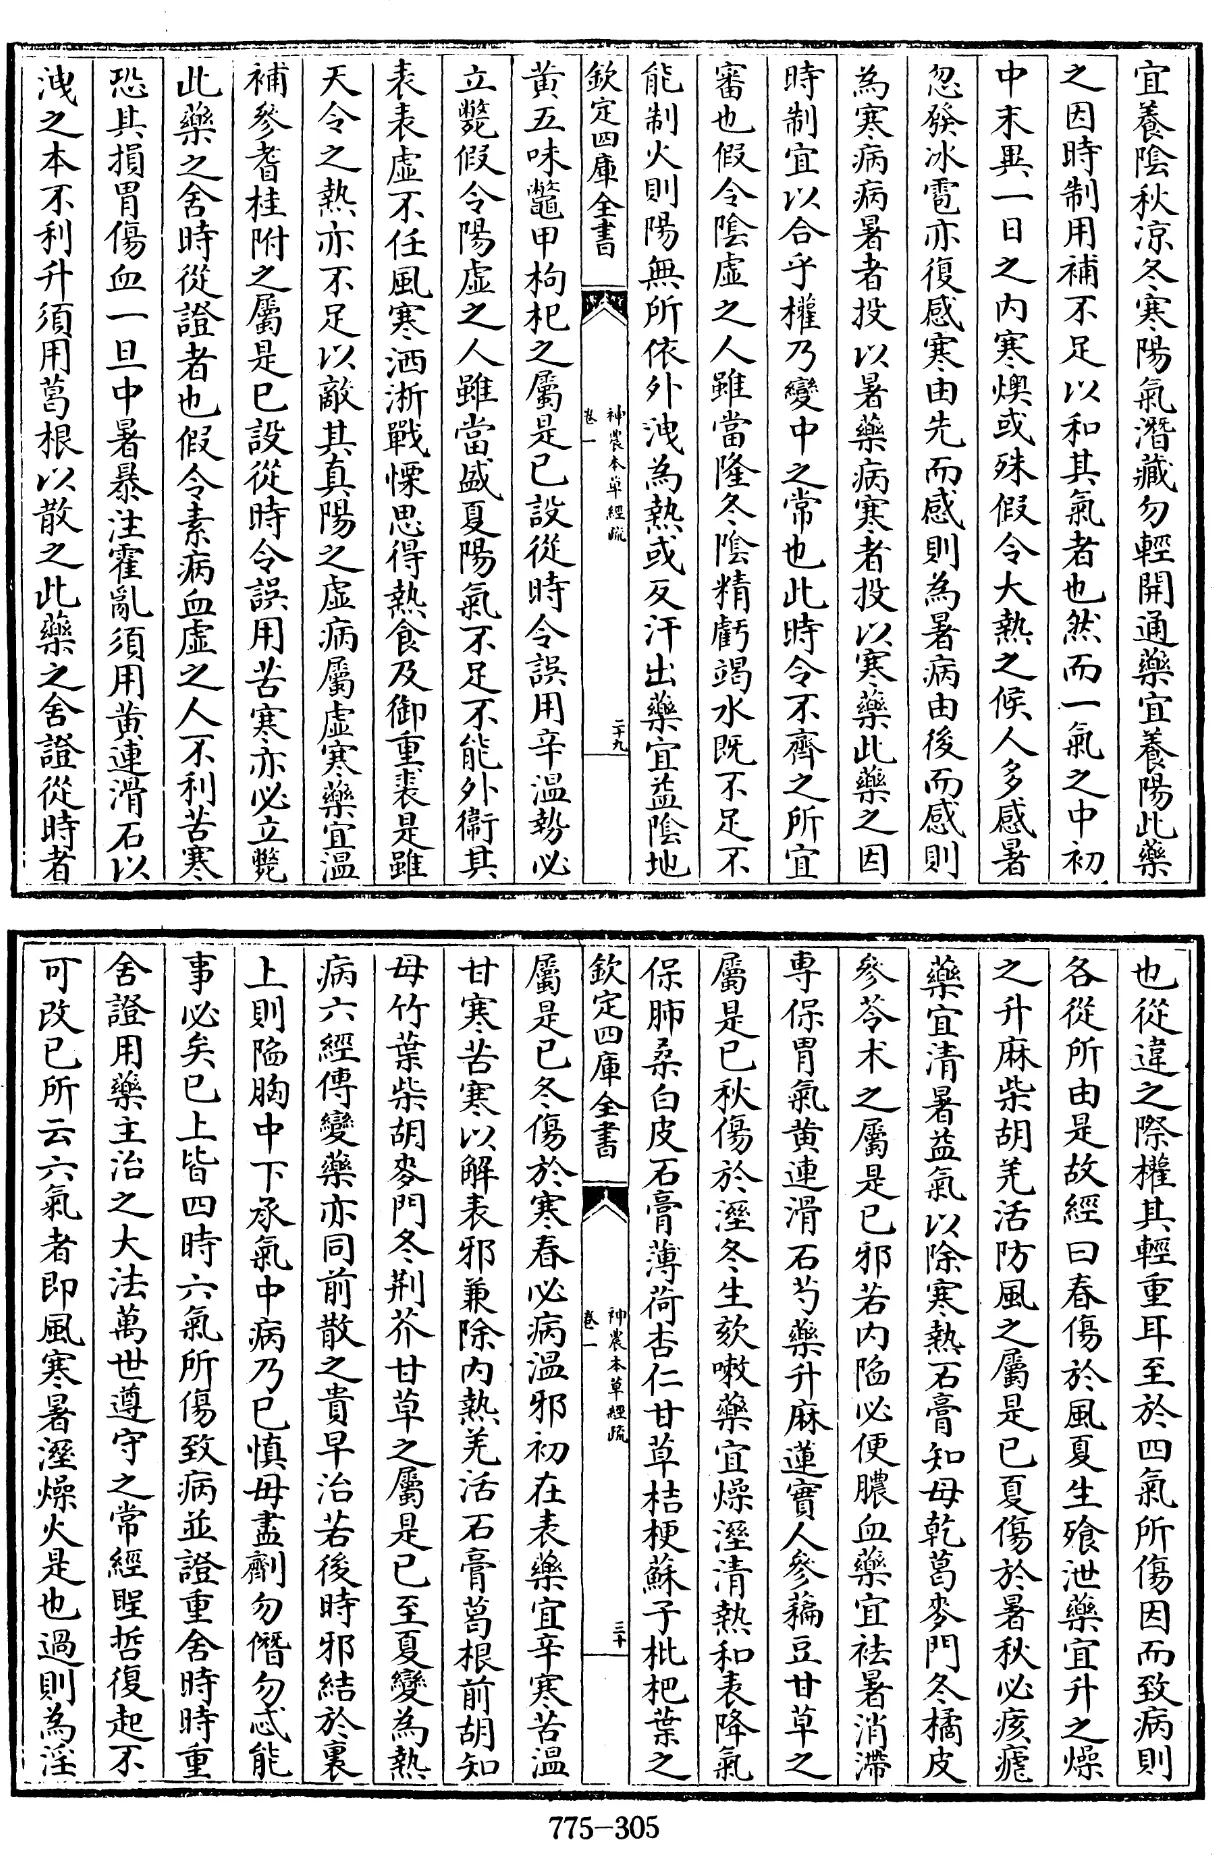 宜養陰秋凉冬寒陽氣潛藏勿輕開通藥宜養陽此藥
之因時制用補不足以和其氣者也然而一氣之中初
中末異一日之内寒燠或殊假令大熱之候人多感暑
忽發冰雹亦復感寒由先而感則為暑病由後而感則
為寒病病暑者投以暑藥病寒者投以寒藥此藥之因
時制宜以合乎權乃變中之常也此時令不齊之所宜
審也假令陰虚之人雖當隆冬陰精虧竭水既不足不
能制火則陽無所依外洩為熱或反汗出藥宜益陰地
欽定四庫全書
神農本草經疏
卷一
二十九
黄五味鼈甲枸杞之屬是已設從時令誤用辛温勢必
立斃假令陽虚之人雖當盛夏陽氣不足不能外衞其
表表虚不任風寒洒淅戰慄思得熱食及御重裘是雖
天令之熱亦不足以敵其真陽之虚病屬虚寒藥宜温
補參耆桂附之屬是已設從時令誤用苦寒亦必立斃
此藥之舍時從證者也假令素病血虚之人不利苦寒
恐其損胃傷血一旦中暑暴注霍亂須用黄連滑石以
洩之本不利升須用葛根以散之此藥之舍證從時者
也從違之際權其輕重耳至於四氣所傷因而致病則
各從所由是故經曰春傷於風夏生飱泄藥宜升之燥
之升麻柴胡羌活防風之屬是已夏傷於暑秋必痎瘧
藥宜清暑益氣以除寒熱石膏知母乾葛麥門冬橘皮
參苓术之屬是已邪若内陷必便膿血藥宜祛暑消滯
専保胃氣黄連滑石芍藥升麻蓮實人參藊豆甘草之
屬是已秋傷於溼冬生欬嗽藥宜燥溼清熱和表降氣
保肺桑白皮石膏薄荷杏仁甘草桔梗蘇子枇杷葉之
欽定四庫全書
神農本草經疏
卷一
三十
屬是已冬傷於寒春必病温邪初在表藥宜辛寒苦温
甘寒苦寒以解表邪兼除内熱羌活石膏葛根前胡知
母竹葉柴胡麥門冬荆芥甘草之屬是已至夏變為熱
病六經傳變藥亦同前散之貴早治若後時邪結於裏
上則陷胸中下承氣中病乃已慎毋盡劑勿僭勿忒能
事必矣已上皆四時六氣所傷致病並證重舍時時重
舍證用藥主治之大法萬世遵守之常經聖哲復起不
可改已所云六氣者即風寒暑溼燥火是也過則為淫
775-305